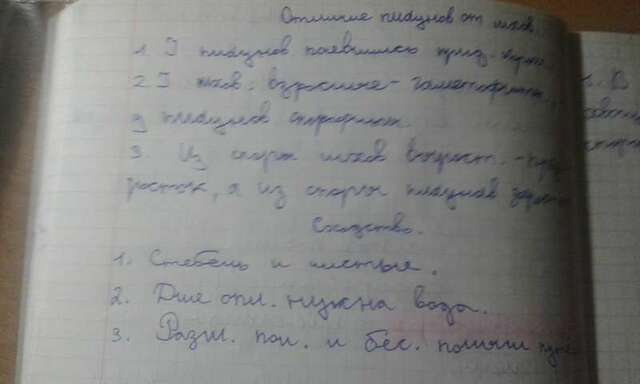 Отличие плаунов от мхов.
1. У плаунов появились
2 У мхов. взрослые - гаметофиты,
у плаунов спорофит.
3. Из споры мхов вырост. -
росток, а из споры плаунов
Сходство.
1. Стебель и листья.
2. Для опл. нужна вода.
3. Разм. пол. и бес. полыми